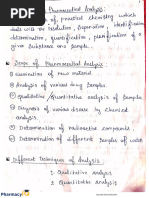 Pharmaceutical Analysis:
of practical chemistry which
deals with the resolution, separation, identification
determination, quantification, purification of a
given substance and sample.
Scope of Pharmaceutical Analysis
of new material
Analysis of various drug samples.
Quantitative analysis of sample
Diagnosis of various disease by Chemical
analysis.
Determination of Radioactive compounds.
Determination of Water and cement.
Different Techniques of Analysis
1. Qualitative analysis
2. Quantitative analysis
Pharmacy